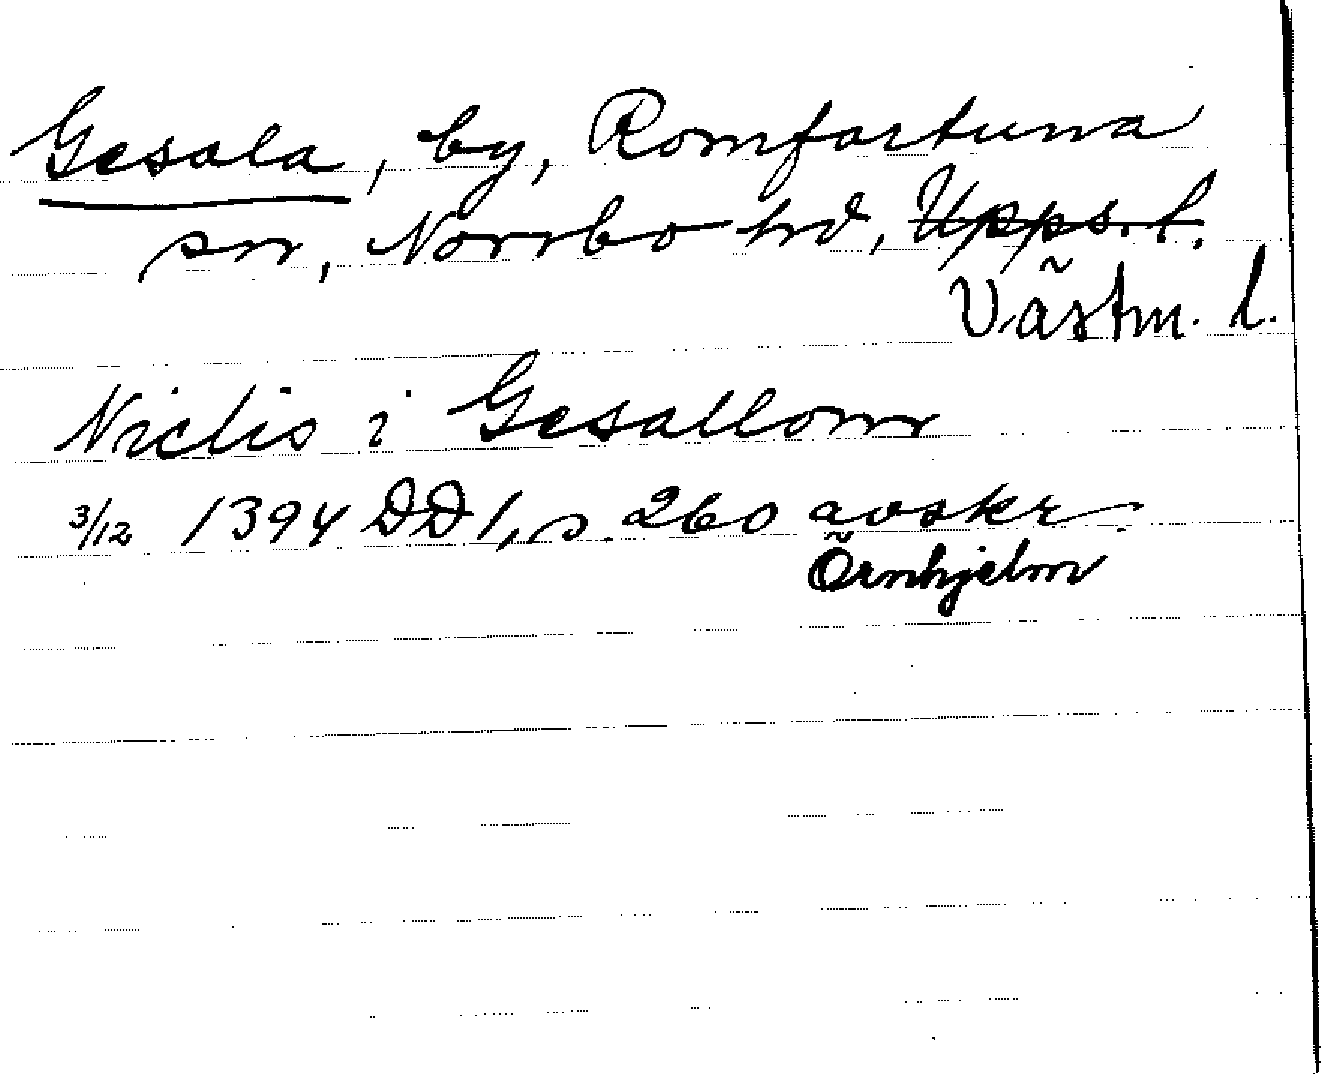 Gesala, by, Romfartuna
sn, Norrbo hd, Upps. l.
Västm. l.
Niclis i Gesallom
3/12 1394 DD 1, s. 260 avskr.
Örnhjelm